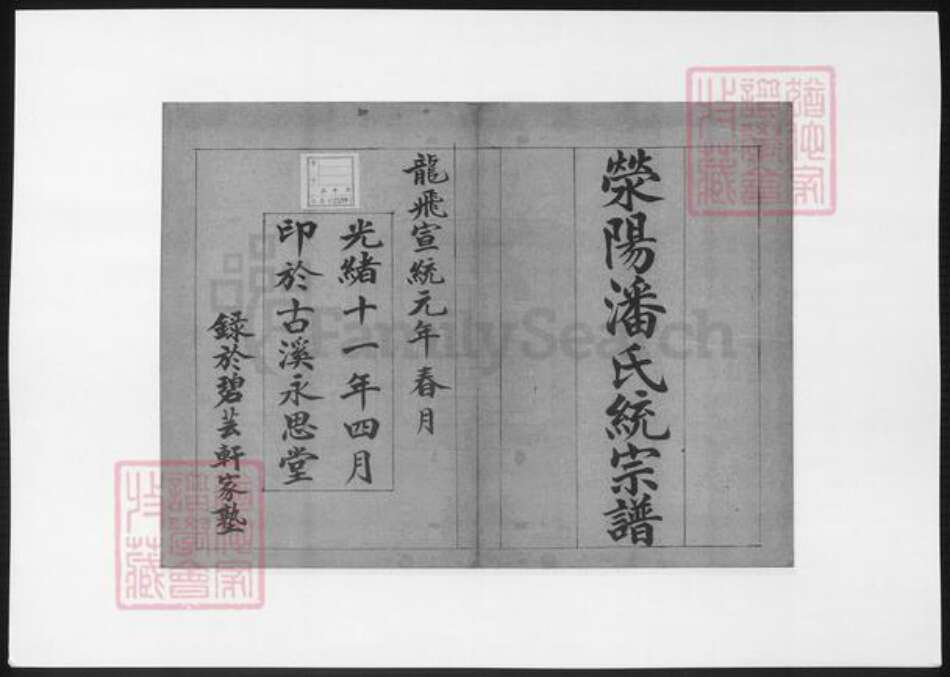 滎陽潘氏統宗譜
龍飛宣統元年春月
光緒十一年四月
印於古溪永思堂
録於碧芸軒家塾
FamilySearch